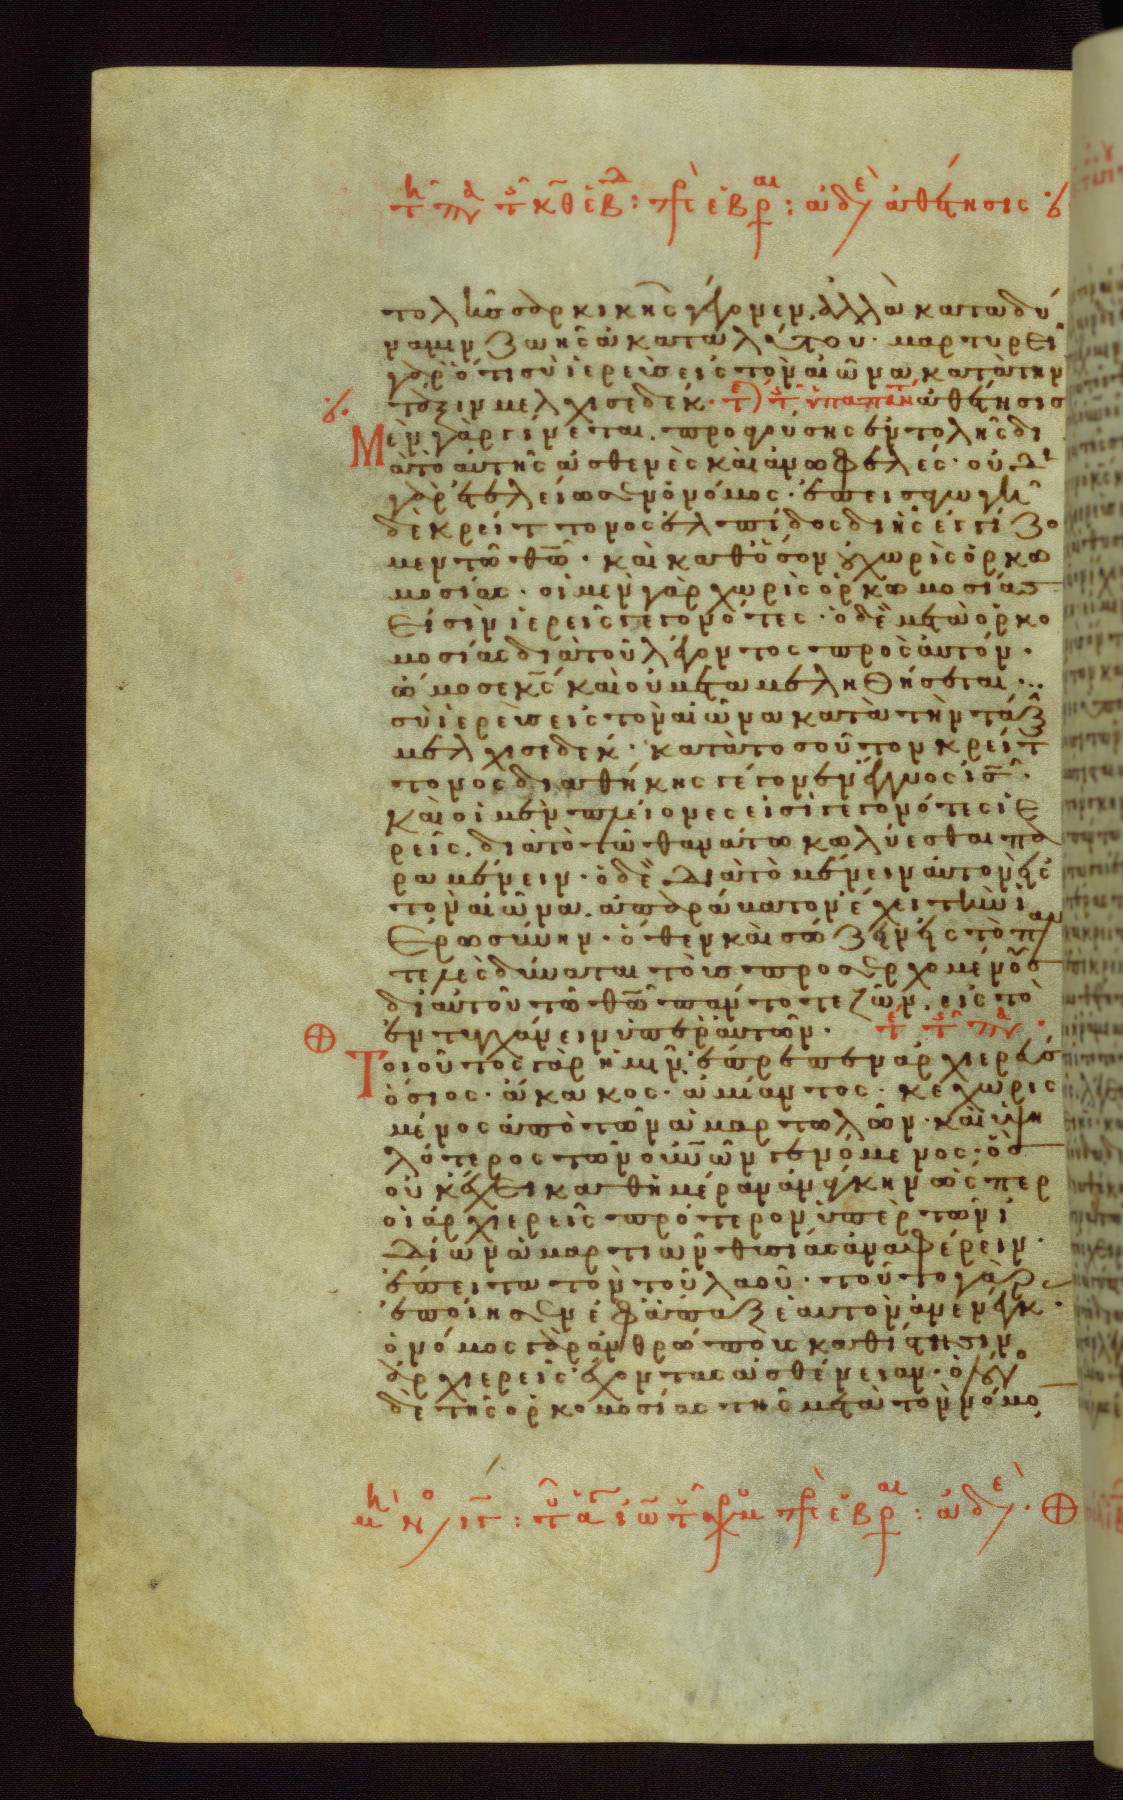 τολῆς σαρκικῆς γέγονεν. ἀλλὰ κατὰ δύ
ναμιν ζωῆς ἀκαταλύτου. μαρτυρεῖ
γὰρ ὅτι σὺ ἱερεὺς εἰς τὸν αἰῶνα κατὰ τὴν
τάξιν μελχισεδέκ. ἀθέτησις
Μὲν γὰρ γίνεται. προαγούσης ἐντολῆς δι
ὰ τὸ αὐτῆς ἀσθενὲς καὶ ἀνωφελές. οὐδὲν
γὰρ ἐτελείωσεν ὁ νόμος. ἐπεισαγωγὴ
δὲ κρείττονος ἐλπίδος δι ἧς ἐγγίζο
μεν τῶ θῶ. καὶ καθ ὅσον οὐ χωρὶς ὁρκω
μοσίας. οἱ μὲν γὰρ χωρὶς ὁρκωμοσίας
εἰσὶν ἱερεῖς γεγονότες. ὁ δὲ μετὰ ὁρκο
μοσίας διὰ τοῦ λέγοντος πρὸς αὐτόν.
ὤμοσε κς καὶ οὐ μεταμεληθήσεται.
σὺ ἱερεὺς εἰς τὸν αἰῶνα κατὰ τὴν τάξιν
μελχισεδέκ. κατὰ τοσοῦτον κρείτ
τονος διαθήκης γέγονεν ἔγγυος ις.
καὶ οἱ μὲν πλείονες εἰσὶ γεγονότες ἱε
ρεῖς. διὰ τὸ τῶ θανάτω κωλύεσθαι πα
ραμένειν. ὁ δὲ διὰ τὸ μένειν αὐτὸν εἰς
τὸν αἰῶνα. ἀπαράβατον ἔχει τὴν ἱ
ερωσύνην. ὅθεν καὶ σώζειν εἰς τὸ παν
τελὲς δύναται τοὺς προσερχομένους
δι αὐτοῦ τῶ θῶ πάντοτε ζῶν. εἰς τὸ
ἐντυγχάνειν ὑπὲρ αὐτῶν.
Τοιοῦτος γὰρ ἡμῖν ἔπρεπεν ἀρχιερεύς
ὅσιος. ἄκακος. ἀμίαντος. κεχωρισ
μένος ἀπὸ τῶν ἁμαρτωλῶν. καὶ ὑψη
λότερος τῶν οὐνῶν γενόμενος. ὃς
οὐκ ἔχει καθ ἡμέραν ἀνάγκην ὥσπερ
οἱ ἀρχιερεῖς πρότερον ὑπὲρ τῶν ἰ
δίων ἁμαρτιῶν θυσίας ἀναφέρειν.
ἔπειτα τῶν τοῦ λαοῦ. τοῦτο γὰρ
ἐποίησεν ἐφάπαξ ἑαυτὸν ἀνενέγκας.
ὁ νόμος γὰρ ἀνθρώπους καθίστησιν
ἀρχιερεῖς ἔχοντας ἀσθένειαν. ὁ λόγος
δὲ τῆς ὁρκομοσίας τῆς μετὰ τὸν νόμον